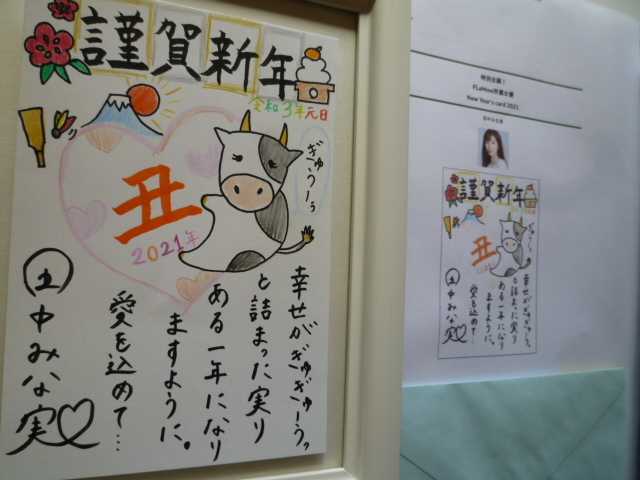 謹賀新年
令和3年元日
ぎゅうーぅ
丑
2021年
幸せがぎゅぎゅーぅっ
と詰まった実り
ある一年になり
ますように。
愛を込めて…
田中みな実♡
特別企画！
FLaMme所属女優
New Year's card 2021
田中みな実
謹賀新年
ぎゅうーぅ
丑
2021年
幸せがぎゅぎゅーぅっ
と詰まった実り
ある一年になり
ますように。
愛を込めて…
田中みな実♡